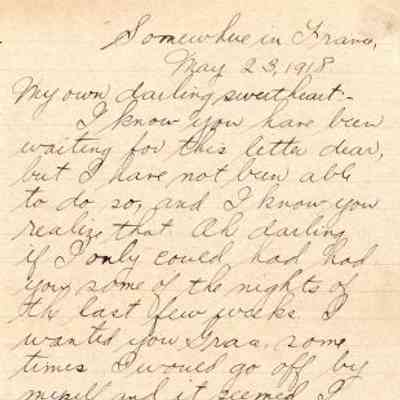 Somewhere in France,
May 23, 1918
My own darling sweetheart:-
I know you have been
waiting for this letter dear,
but I have not been able
to do so, and I know you
realize that. Ah darling
if I only could had had
you some of the nights of
the last few weeks. I
wanted you Grac, some
times I would go off by
myself and it seemed I